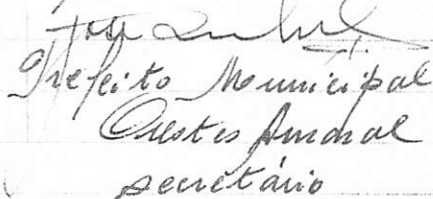 José
Prefeito Municipal
Orestes Amaral
secretário